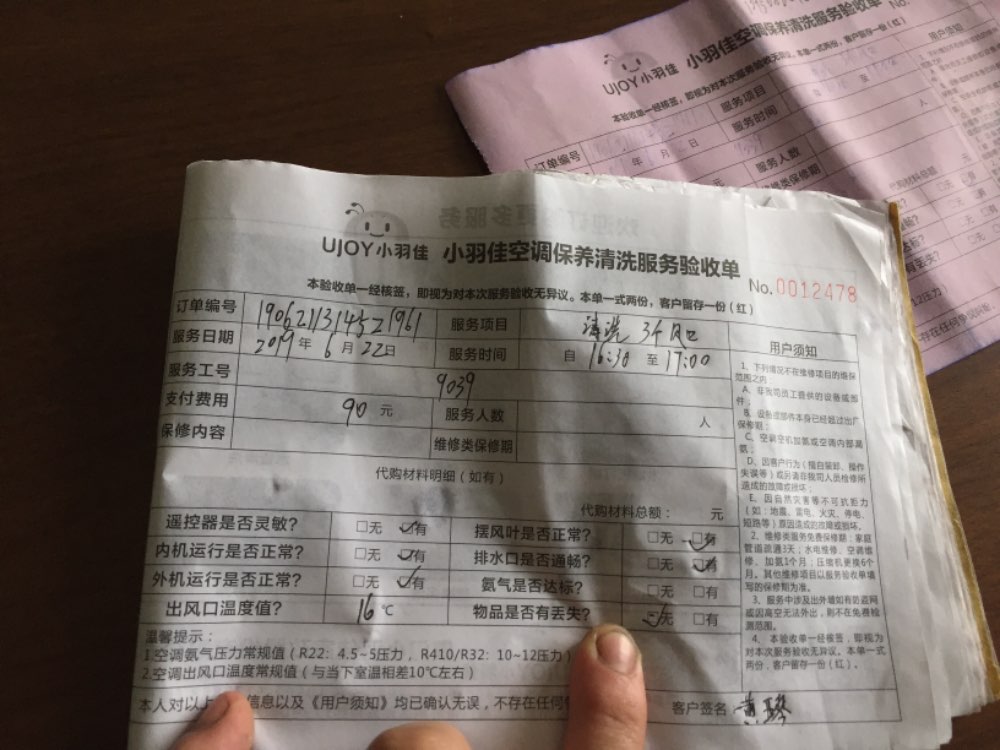 UJOY小羽佳 小羽佳空调保养清洗服务验收单 No.
本验收单一经核签，即视为对本次服务验收无异议。本单一式两份，客户留存一份（红）
订单编号 服务项目 用户须知
年 月 日 服务时间 自 至
服务人数 人
维修类保修期
代购材料总额 元
UJOY小羽佳 小羽佳空调保养清洗服务验收单 No.0012478
本验收单一经核签，即视为对本次服务验收无异议。本单一式两份，客户留存一份（红）
订单编号 服务项目 清洗
服务日期 2019年6月22日 服务时间 自 16:30 至 17:00
服务工号 9039
支付费用 90 元 服务人数 人
保修内容 维修类保修期
代购材料明细（如有）
代购材料总额： 元
遥控器是否灵敏？ □无 □有 摆风叶是否正常？ □无 □有
内机运行是否正常？ □无 □有 排水口是否通畅？ □无 □有
外机运行是否正常？ □无 □有 氨气是否达标？ □无 □有
出风口温度值？ 16 ℃ 物品是否有丢失？ □无 □有
温馨提示：
1.空调氨气压力常规值（R22：4.5~5压力，R410/R32：10~12压力）
2.空调出风口温度常规值（与当下室温相差10℃左右）
本人对以上 信息以及《用户须知》均已确认无误，不存在任何
客户签名
用户须知
1、下列情况不在维修项目的维保
范围之内：
A、非我司员工提供的设备或部
件；
B、设备或部件本身已经超过出厂
保修期；
C、空调空机加氨或空调内部漏
氨；
D、因客户行为（擅自装卸、操作
失误等）或另请非我司人员检修所
造成的故障或损坏；
E、因自然灾害等不可抗拒力
（如：地震、雷电、火灾、停电、
短路等）原因造成的故障或损坏。
2、维修类服务免费保修期：家庭
管道疏通3天；水电维修、空调维
修、加氨1个月；压缩机更换6个
月。其他维修项目以服务验收单填
写的保修期为准。
3、服务中涉及出外墙如有防盗网
或因高空无法外出，则不在免费检
测范围。
4、本验收单一经核签，即视为
对本次服务验收无异议。本单一式
两份，客户留存一份（红）。